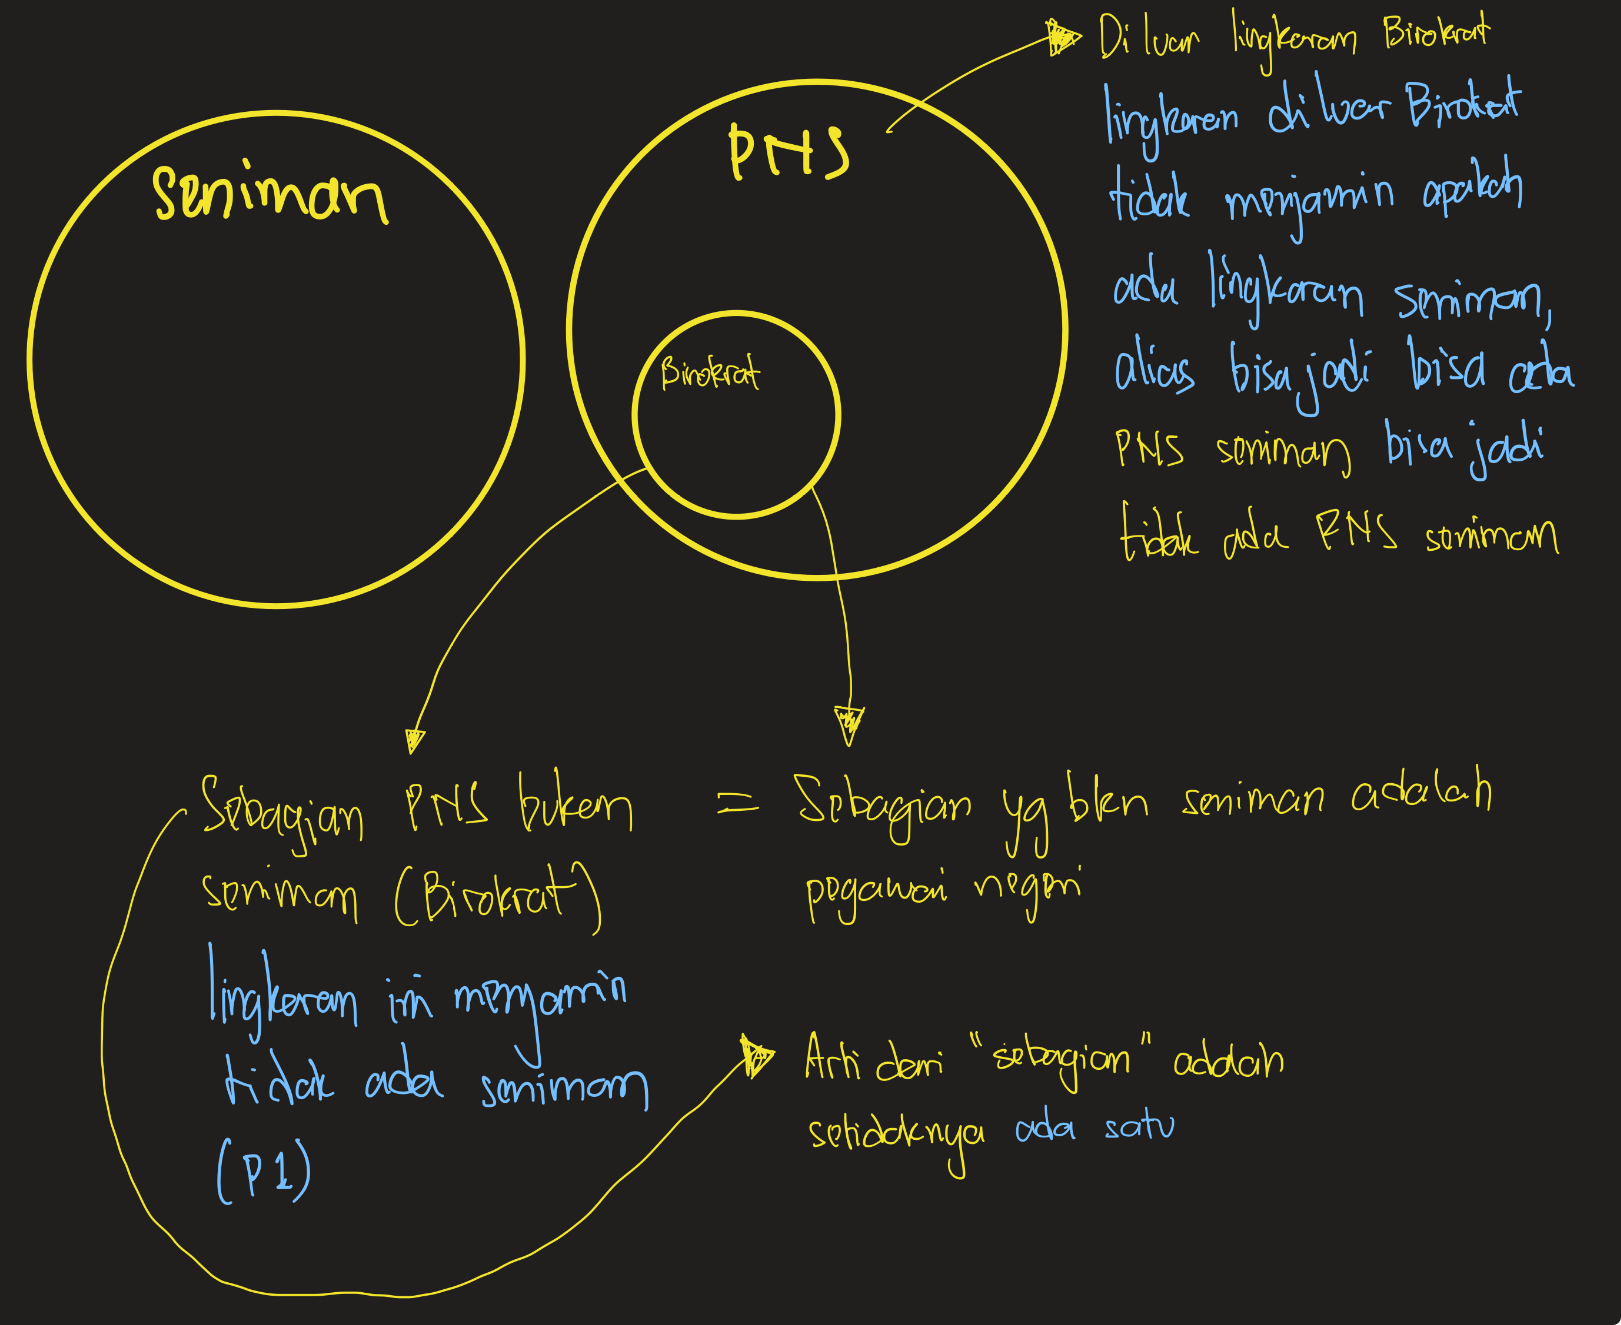 Seniman
PNS
Birokrat
Di luar lingkaran Birokrat
lingkaran diluar Birokrat
tidak menjamin apakah
ada lingkaran seniman,
alias bisa jadi bisa ada
PNS seniman, bisa jadi
tidak ada PNS seniman
Sebagian PNS bukan
seniman (Birokrat)
lingkaran ini menjamin
tidak ada seniman
(P1)
= Sebagian yg bkn seniman adalah
pegawai negeri
Arti dari "sebagian" adalah
setidaknya ada satu